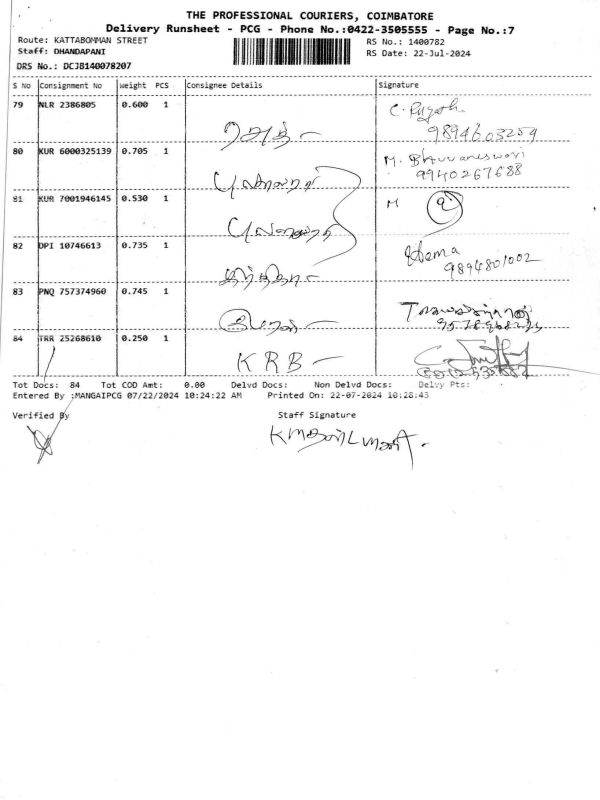 THE PROFESSIONAL COURIERS, COIMBATORE
Delivery Runsheet - PCG - Phone No.:0422-3505555 - Page No.:7
Route: KATTABOMMAN STREET
RS No.: 1400782
Staff: DHANDAPANI
RS Date: 22-Jul-2024
DRS No.: DCJB140078207
S No Consignment No Weight PCS Consignee Details Signature
79 NLR 2386805 0.600 1
9894603259
80 KUR 6000325139 0.705 1 M. Bhuvaneswari
9940267688
81 KUR 7001946145 0.530 1 M
82 DPI 10746613 0.735 1 Hema
9894801002
83 PNQ 757374960 0.745 1
84 TRR 25268610 0.250 1 KRB -
Tot Docs: 84 Tot COD Amt: 0.00 Delvd Docs: Non Delvd Docs: Delvy Pts:
Entered By :MANGAIPCG 07/22/2024 10:24:22 AM Printed On: 22-07-2024 10:28:43
Verified By Staff Signature